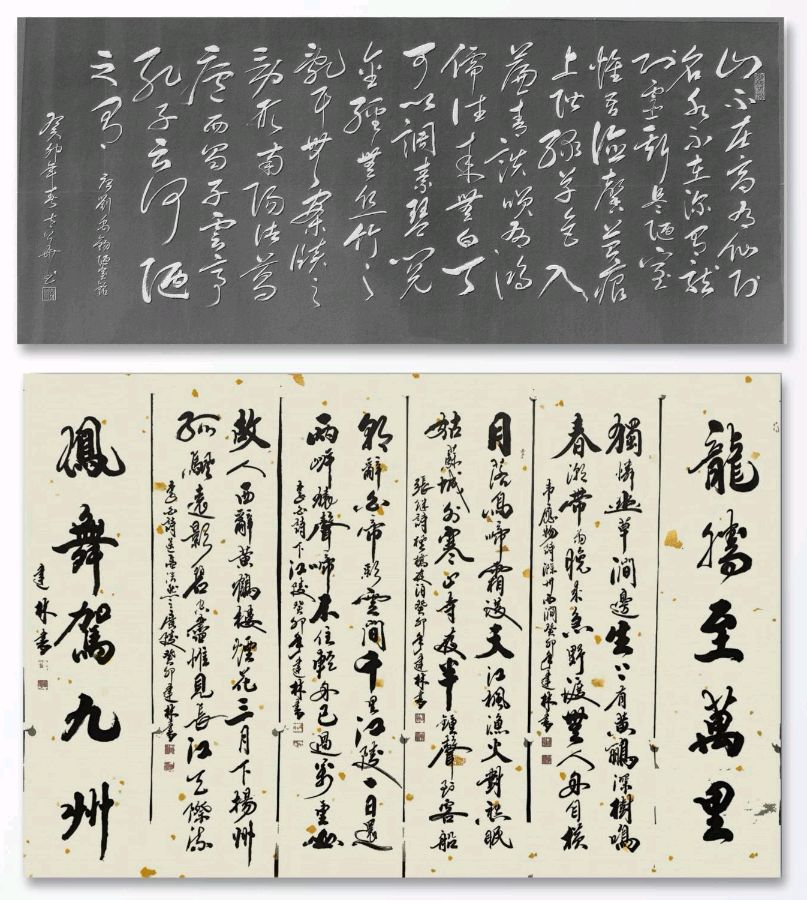 山不在高有仙則
名水不在深有龍
則靈斯是陋室
惟吾德馨苔痕
上階綠草色入
簾青談笑有鴻
儒往來無白丁
可以調素琴閱
金經無絲竹之
亂耳無案牘之
勞形南陽諸葛
廬西蜀子雲亭
孔子云何陋
之有
唐劉禹錫陋室銘
癸卯年春
龍騰至萬里
獨憐幽草澗邊生上有黃鸝深樹鳴
春潮帶雨晚來急野渡無人舟自橫
韋應物詩滁州西澗癸卯年建林書
月落烏啼霜滿天江楓漁火對愁眠
姑蘇城外寒山寺夜半鐘聲到客船
張繼詩楓橋夜泊癸卯年建林書
朝辭白帝彩雲間千里江陵一日還
兩岸猿聲啼不住輕舟已過萬重山
李白詩下江陵癸卯年建林書
故人西辭黃鶴樓煙花三月下揚州
孤帆遠影碧空盡惟見長江天際流
李白詩送孟浩然之廣陵癸卯建林書
鳳舞駕九州
建林書